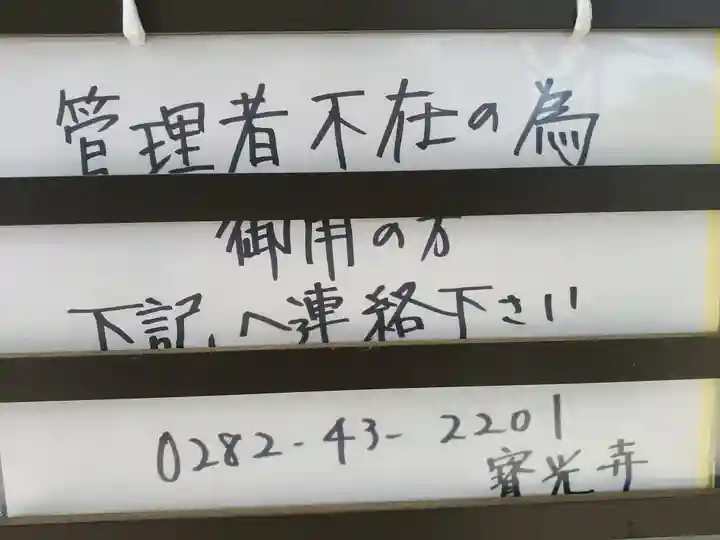 管理者不在の為
御用の方
下記へ連絡下さい
0282-43-2201
寳光寺